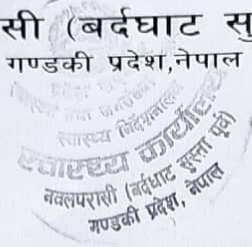 सी (बर्दघाट सु
गण्डकी प्रदेश,नेपाल
स्वास्थ्य निर्देशनालय
स्वास्थ्य कार्यालय
नवलपरासी (बर्दघाट सुस्ता पूर्व)
गण्डकी प्रदेश, नेपाल